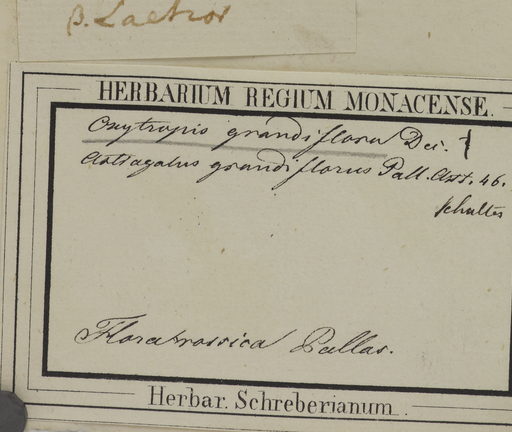 β. Laetior
HERBARIUM REGIUM MONACENSE.
Oxytropis grandiflora Dec. }
Astragalus grandiflorus Pall. Astr. 46.
Schultes
Flora rossica Pallas.
Herbar. Schreberianum.